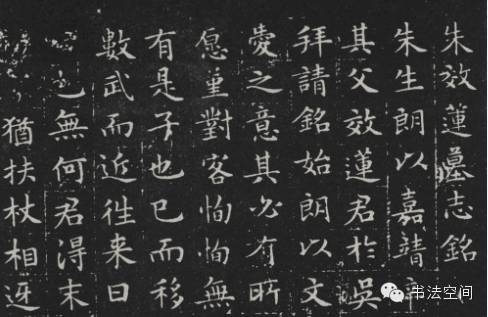 朱效蓮墓志銘
朱生朗以嘉靖
其父效蓮君於吳
拜請銘始朗以文
愛之意其必有所
對客恂恂無
有是子也已而移
數武而近往来日
無何君得末
猶扶杖相迓
书法空间